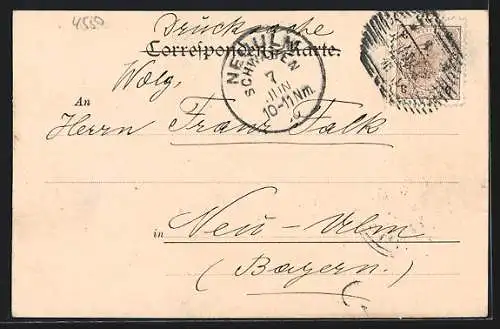 4550
Drucksache
Correspondenz-Karte.
NEU-ULM
SCHWABEN
7
JUN
10-11 Nm.
Wolg.
An
Herrn Franz Falk
in Neu-Ulm
(Bayern.)